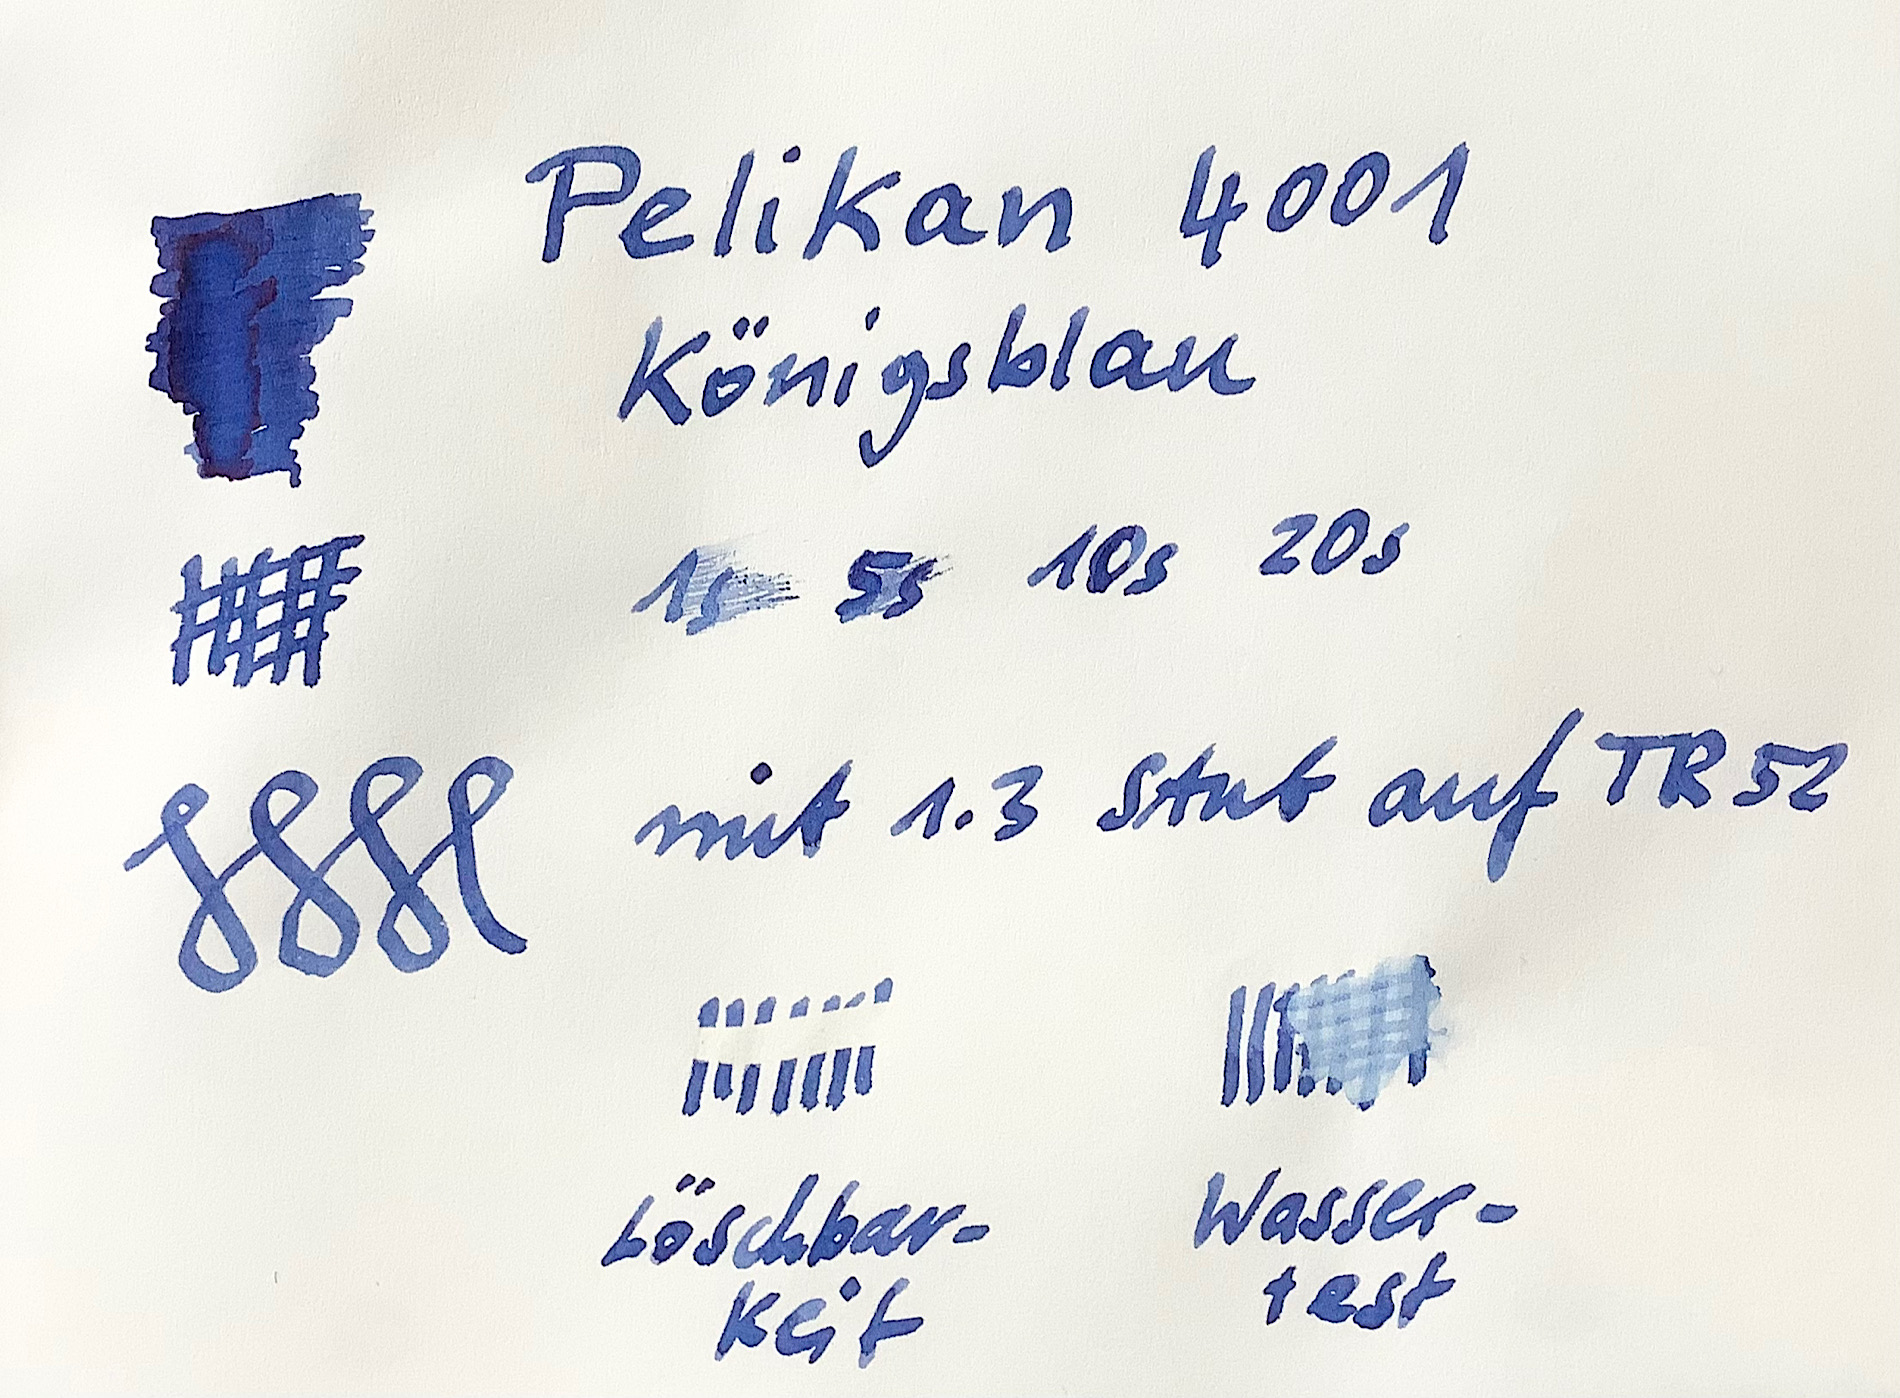 Pelikan 4001
Königsblau
1s 5s 10s 20s
mit 1.3 Stub auf TR52
Löschbar-
keit
Wasser-
test